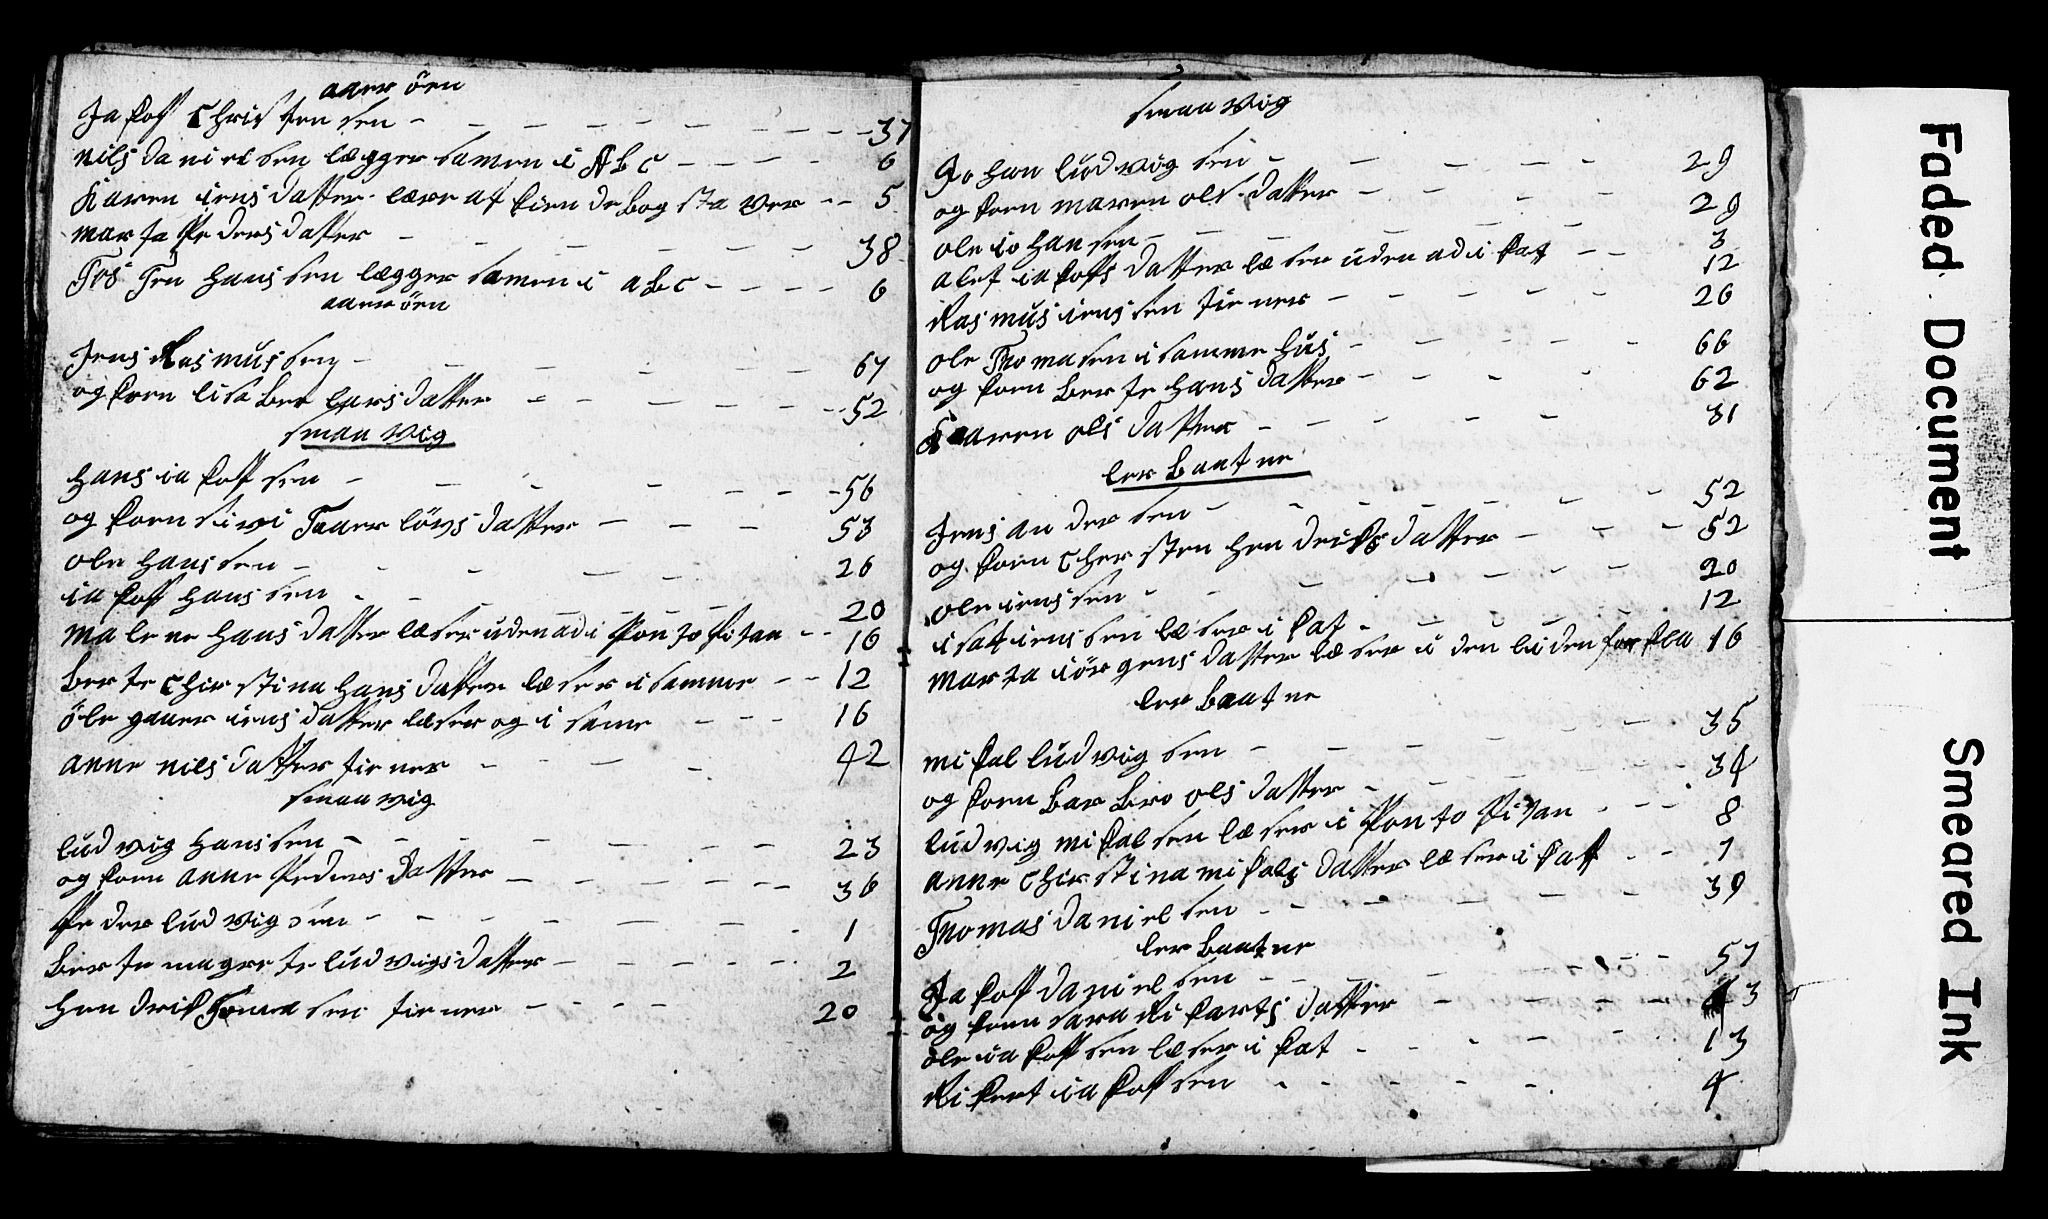 aarröen
Jakof Christensen - - - - - - - - 37
nils danielsen lægger samen i ABC - - - - 6
Karen iens datter lærer at kiende bogstaver - - 5
marta Peders datter - - - - - - 38
Tosten hanssen lægger samen i aBc - - - - 6
aarröen
Jens Rasmussen - - - - - - - 67
og kone lisaber lars datter - - - - - - 52
smaavig
hans iakoffsen - - - - - - - 56
og kone sirvi Taaerlövs datter - - - 53
ole hanssen - - - - - 26
iakof hanssen - - 20
malene hans datter læser udenad i Pontopitan - - 16
berte Chirstina hans datter læser i samme - - 12
öle gauer iens datter læser og i same - - - 16
anne nils datter tiener - - - - 42
smaavig
ludvig hanssen - - - - - - - - 23
og kone anne Peders datter - - - - - - 36
Peder ludvigsen - - - - - - - 1
berte magrete ludvigs datter - - - - - - 2
hendrik tiener - - - - 20
smaavig
Johan ludvigsen - - - - - 29
og kone maren ols datter - - - - 29
ole iohansen - - - - - - - 3
alet iakoffs datter læser udenad i kat - - 12
Rasmus ienssen tiener - - - - - 26
ole Thomasen i samme hus - - - - - 66
og kone berte hans datter - - - - 62
Kaaren ols datter - - - - - - 31
lerbaatne
Jens andersen - - - - - - - - 52
og kone Chersten hendriks datter - - - 52
ole ienssen - - - - - - - - 20
isak ienssen læser i kat - - - - - 12
marta iörgens datter læser i den liden forkla 16
lerbaatne
mikal ludvigsen - - - - - - 35
og kone barbro ols datter - - - - - - 34
ludvig mikalsen læser i Pontopitan - - - 8
anne Chirstina mikals datter læser i kat - - 7
Thomas danielsen - - - - - - - 39
lerbaatne
Jakoff danielsen - - - - - - - - 57
og kone sara Rikarts datter - - - - - 43
ole iakoffsen læser i kat - - - - 13
Rikert iakoffsen - - - - - - 4
Faded Document
Smeared Ink